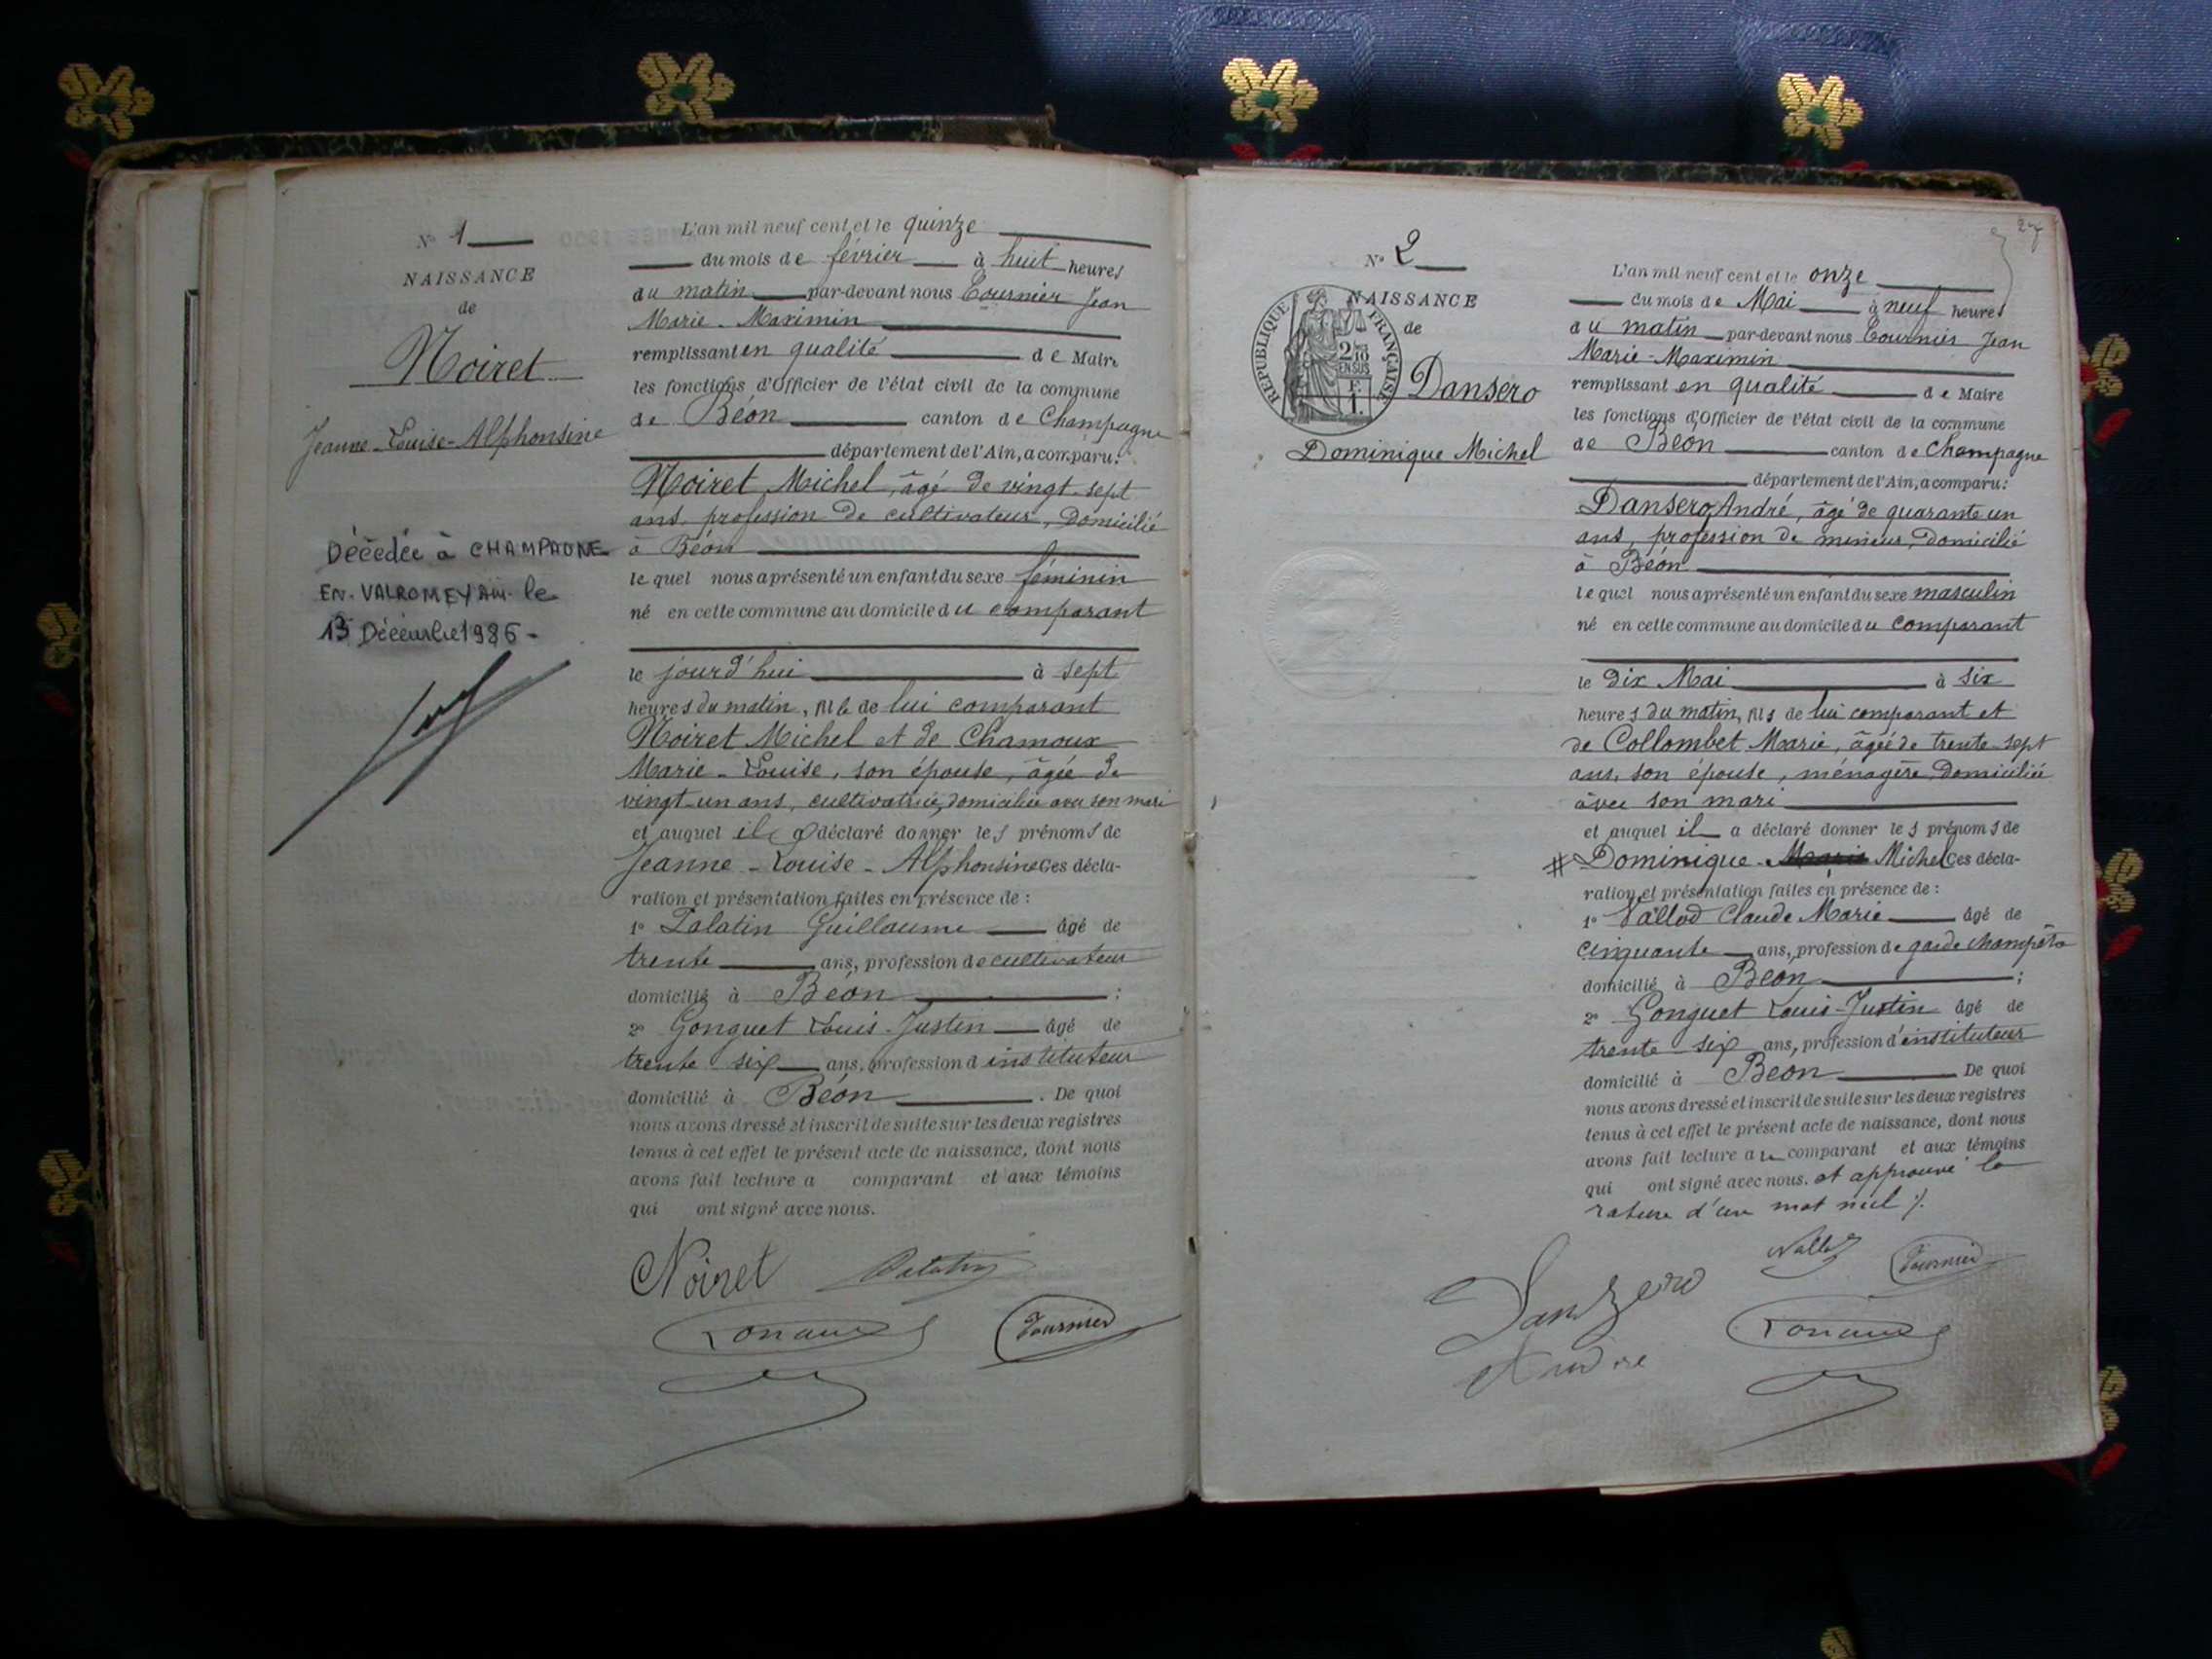 Nº 1
NAISSANCE
de
Noiret
Jeanne-Louise-Alphonsine
Décédée à CHAMPAGNE
EN-VALROMEY Ain le
13 Décembre 1986 -
L'an mil neuf cent et le quinze
du mois de février à huit heures
du matin par-devant nous Tournier Jean
Marie-Maximin
remplissant en qualité de Maire
les fonctions d'Officier de l'état civil de la commune
de Béon canton de Champagne
département de l'Ain, a comparu:
Noiret Michel, âgé de vingt-sept
ans, profession de cultivateur, domicilié
à Béon
lequel nous a présenté un enfant du sexe féminin
né en cette commune au domicile du comparant
le jourd'hui à sept
heures du matin, fille de lui comparant
Noiret Michel et de Chamoux
Marie-Louise, son épouse, âgée de
vingt-un ans, cultivatrice, domiciliée avec son mari
et auquel il a déclaré donner les prénoms de
Jeanne-Louise-Alphonsine Ces décla-
ration et présentation faites en présence de :
1º Palatin Guillaume âgé de
trente ans, profession de cultivateur
domicilié à Béon ;
2º Gonguet Louis-Justin âgé de
trente six ans, profession d'instituteur
domicilié à Béon . De quoi
nous avons dressé et inscrit de suite sur les deux registres
tenus à cet effet le présent acte de naissance, dont nous
avons fait lecture a comparant et aux témoins
qui ont signé avec nous.
Noiret Palatin
Tournier
27
Nº 2
NAISSANCE
de
REPUBLIQUE FRANÇAISE
2/10
EN SUS
F.
1.
Dansero
Dominique Michel
L'an mil neuf cent et le onze
du mois de Mai à neuf heures
du matin par-devant nous Tournier Jean
Marie-Maximin
remplissant en qualité de Maire
les fonctions d'Officier de l'état civil de la commune
de Béon canton de Champagne
département de l'Ain, a comparu:
Dansero André, âgé de quarante un
ans, profession de mineur, domicilié
à Béon
lequel nous a présenté un enfant du sexe masculin
né en cette commune au domicile du comparant
le dix Mai à six
heures du matin, fils de lui comparant et
de Collombet Marie, âgée de trente-sept
ans, son épouse, ménagère, domiciliée
avec son mari
et auquel il a déclaré donner les prénoms de
# Dominique-Marie Michel Ces décla-
ration et présentation faites en présence de :
1º Vallod Claude Marie âgé de
cinquante ans, profession de garde champêtre
domicilié à Béon ;
2º Gonguet Louis-Justin âgé de
trente-six ans, profession d'instituteur
domicilié à Beon De quoi
nous avons dressé et inscrit de suite sur les deux registres
tenus à cet effet le présent acte de naissance, dont nous
avons fait lecture au comparant et aux témoins
qui ont signé avec nous. et approuvé la
rature d'un mot nul
Vallod Tournier
Danzero
André